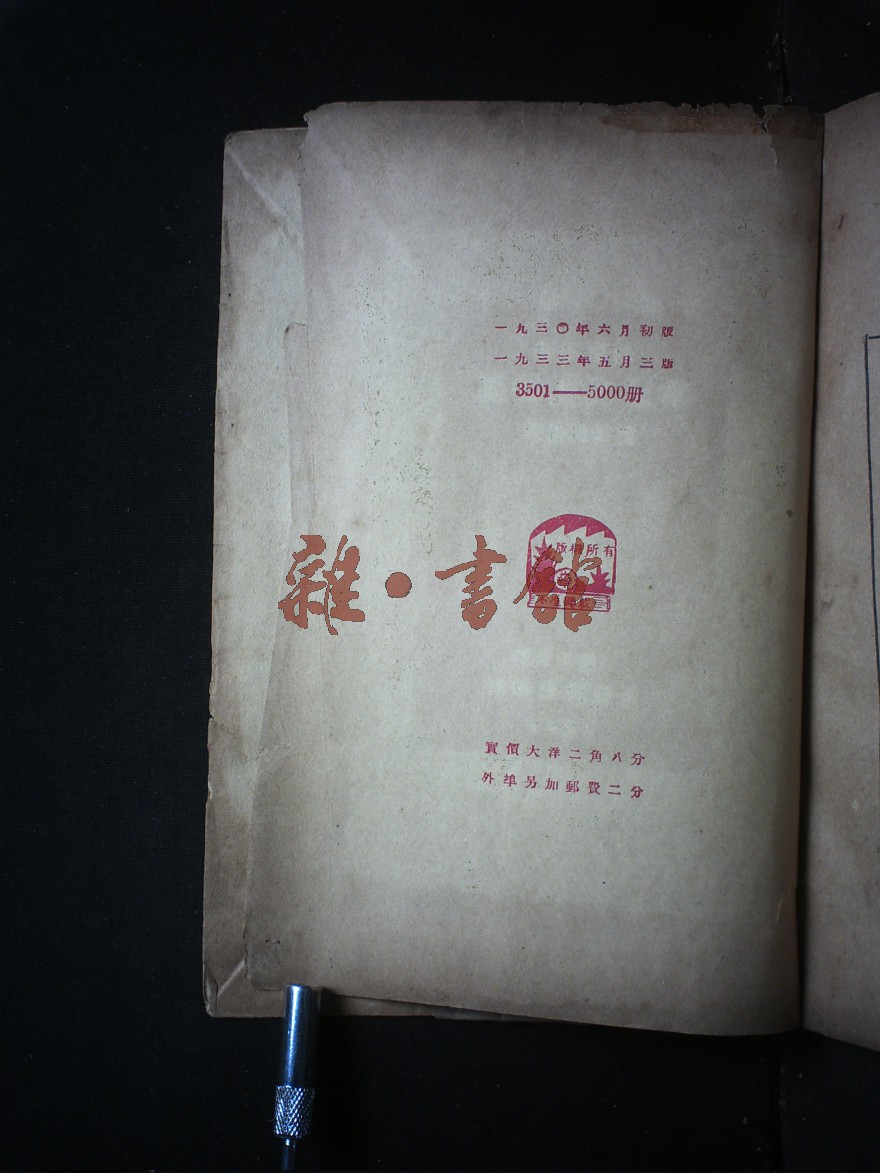 一九三〇年六月初版
一九三三年五月三版
3501——5000册
版權所有
雜·書館
實價大洋二角八分
外埠另加郵費二分